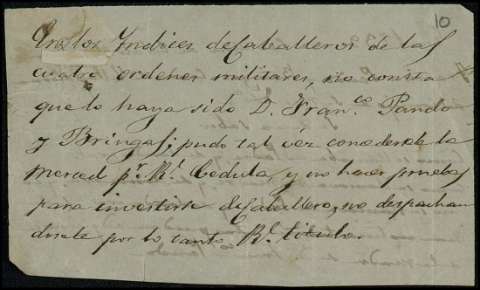 10
En los Indices de Caballeros de las
cuatro ordenes militares, no consta
que lo haya sido D. Fran.co Pando
y Bringas; pudo tal vez concedersele la
merced pr. Rl. Cedula, y no hacer pruebas
para invertirse de Caballero, no despachan
dosele por lo tanto Rl. titulo.